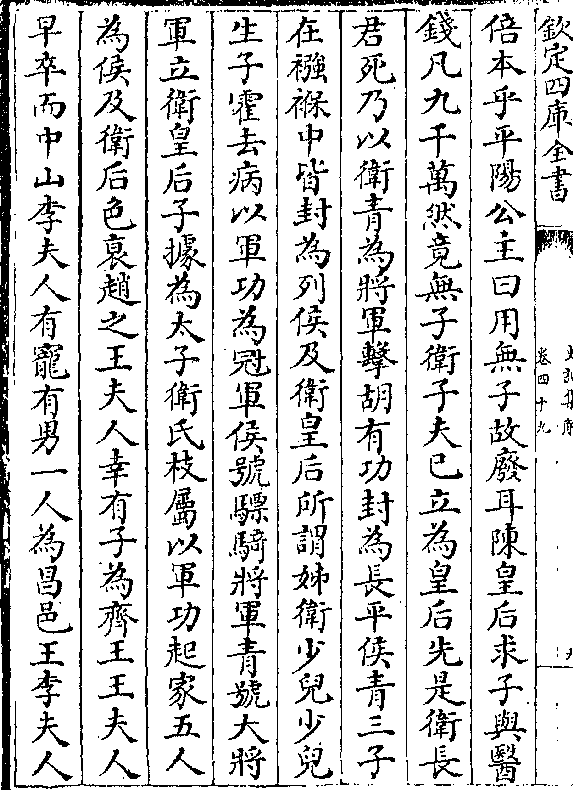 欽定四庫全書
卷四十九
倍本乎平陽公主曰用無子故廢耳陳皇后求子與醫
錢凡九千萬然竟無子衛子夫已立為皇后先是衛長
君死乃以衛青為將軍擊胡有功封為長平侯青三子
在襁褓中皆封為列侯及衛皇后所謂姊衛少兒少兒
生子霍去病以軍功為冠軍侯號驃騎將軍青號大將
軍立衛皇后子據為太子衛氏枝屬以軍功起家五人
為侯及衛后色衰趙之王夫人幸有子為齊王王夫人
早卒而中山李夫人有寵有男一人為昌邑王李夫人